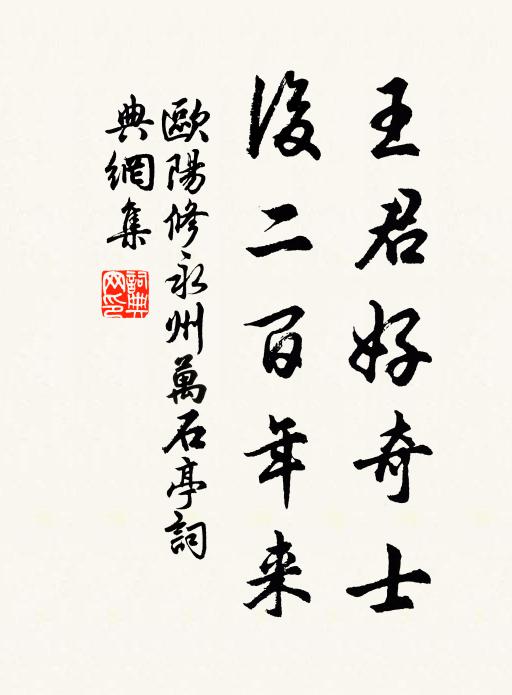 王君好奇士
後二百年来
歐陽修永州萬石亭詞
典網集
詞典
网印